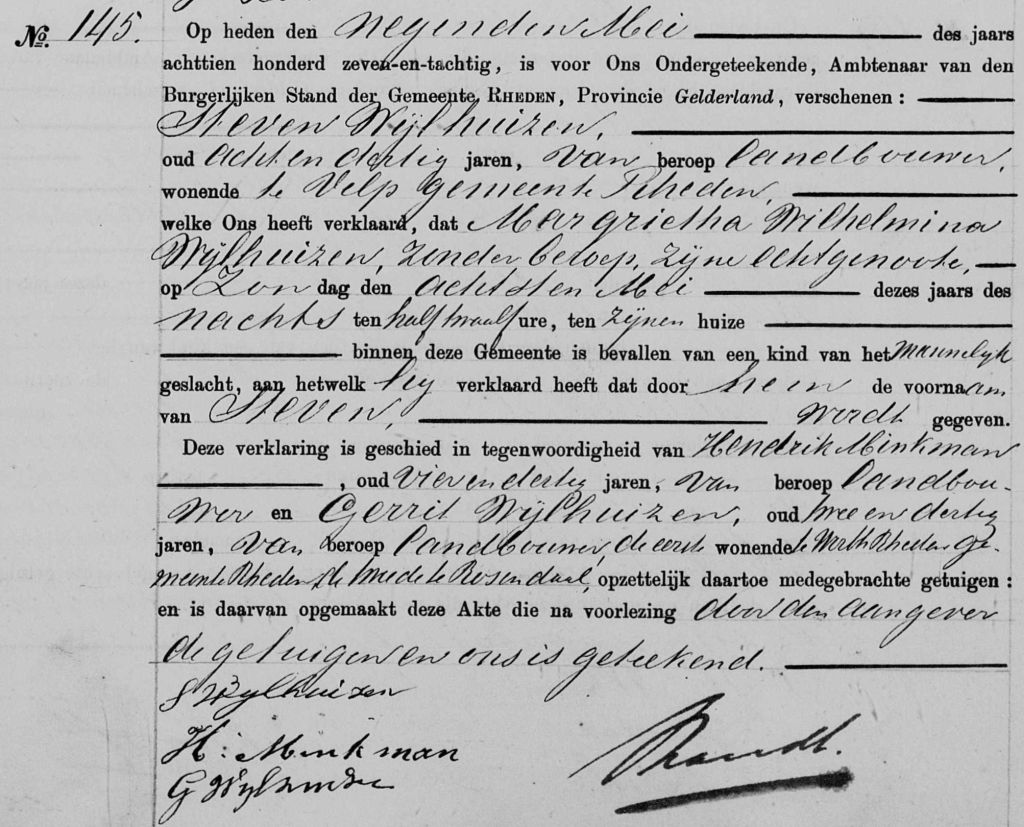 No. 145. Op heden den negenden Mei des jaars
achttien honderd zeven-en-tachtig, is voor Ons Ondergeteekende, Ambtenaar van den
Burgerlijken Stand der Gemeente RHEDEN, Provincie Gelderland, verschenen:
Steven Wijlhuizen,
oud acht en dertig jaren, van beroep landbouwer,
wonende te Velp gemeente Rheden,
welke Ons heeft verklaard, dat Margrietha Wilhelmina
Wijlhuizen, zonder beroep, zijne echtgenoote,
op Zondag den achtsten Mei dezes jaars des
nachts ten half twaalf ure, ten zijnen huize
binnen deze Gemeente is bevallen van een kind van het mannelijk
geslacht, aan hetwelk hij verklaard heeft dat door hem de voornaam
van Steven, wordt gegeven.
Deze verklaring is geschied in tegenwoordigheid van Hendrik Minkman
, oud vier en dertig jaren, van beroep landbou-
wer en Gerrit Wijlhuizen, oud twee en dertig
jaren, van beroep landbouwer, de eerste wonende te Worth Rheden ge-
meente Rheden, de tweede te Rosendaal, opzettelijk daartoe medegebrachte getuigen:
en is daarvan opgemaakt deze Akte die na voorlezing door den aangever
de getuigen en ons is geteekend.
S Wylhuizen
H: Minkman
G Wylhuizen
Brandt.